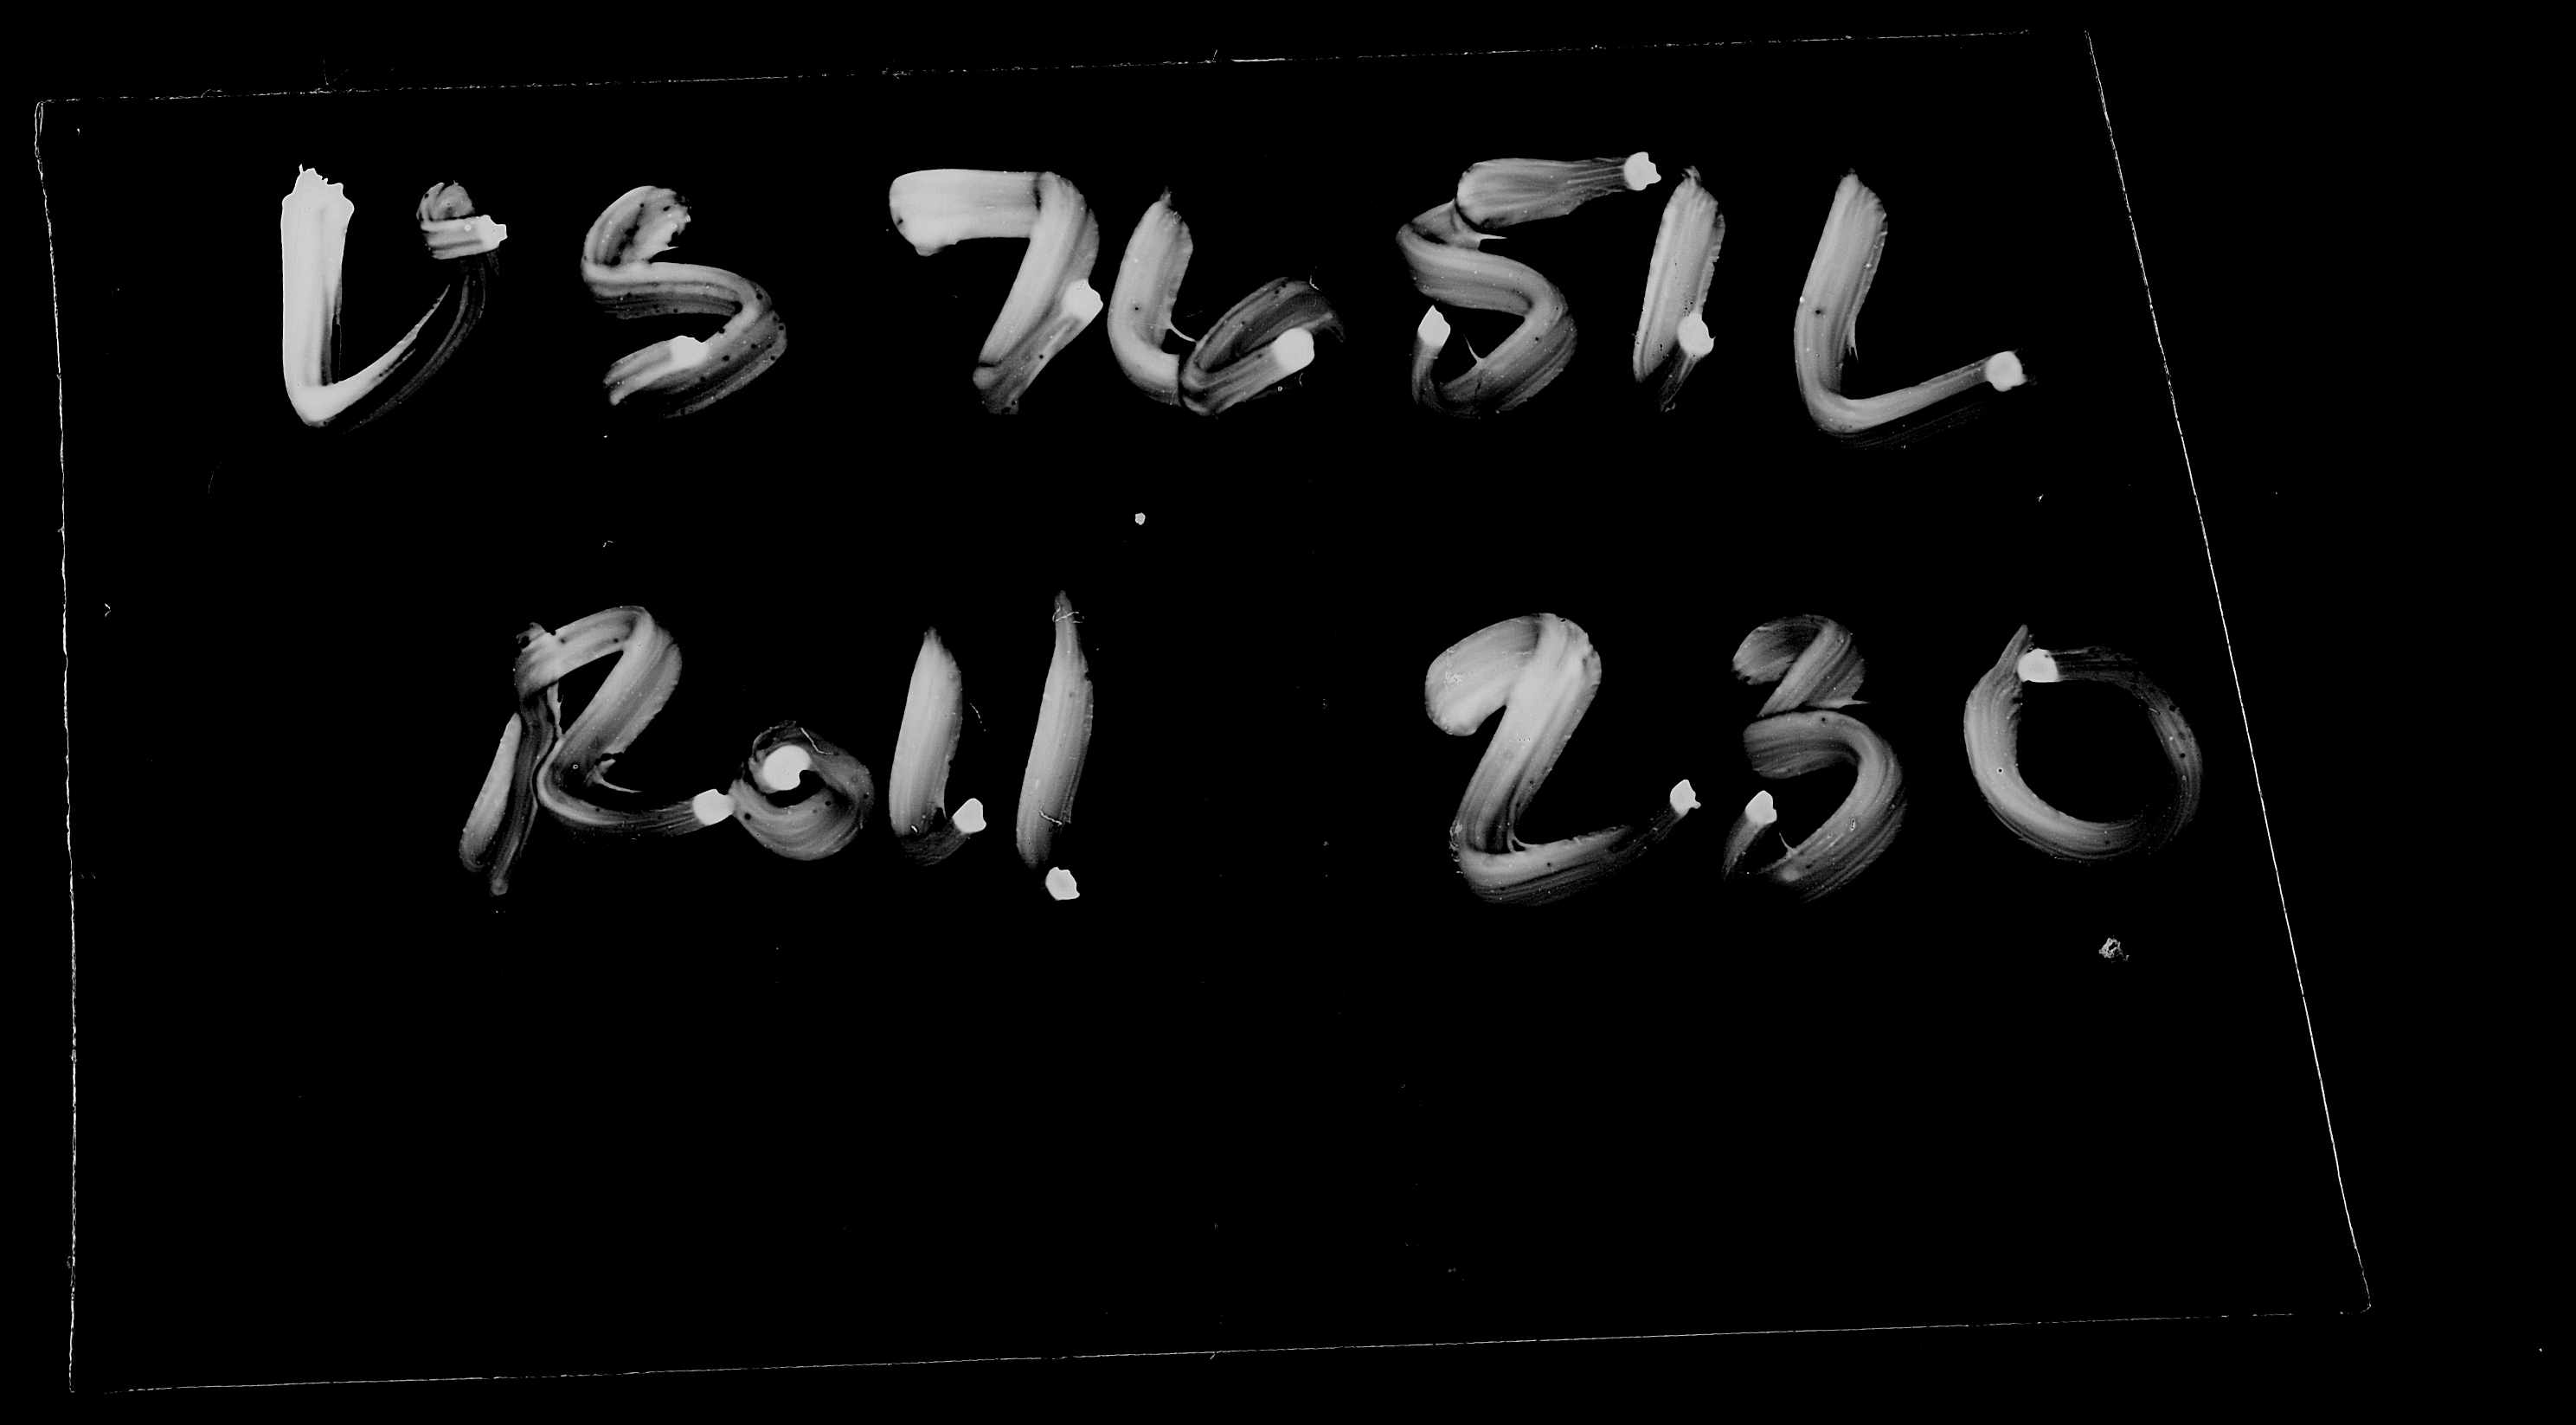 VS 7651L
Roll 230